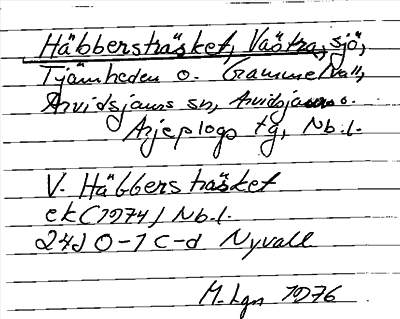 Häbbersträsket, Västra, sjö,
Tjämheden o. Grammelvall,
Arvidsjaurs sn, Arvidsjaurs o.
Arjeplogs tg, Nb.l.
V. Häbbersträsket
ek (1974) Nb.l.
24J 0-1 c-d Nyvall
M. Lgn 1976